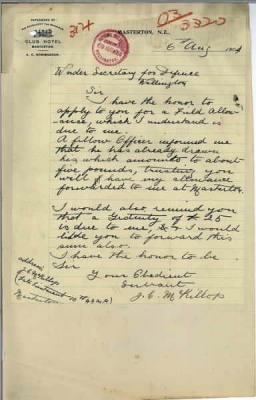 MASTERTON, N.Z.,
314
03/3220
CLUB HOTEL
MASTERTON
6th Aug 1904
Under Secretary for Defence
Wellington
Sir
I have the honor to
apply to you for a Field Allow-
ance, which I understand is
due to me.
A fellow Officer informs me
that he has already drawn
his which amounts to about
five pounds, trusting you
will have my allowance
forwarded to me at Masterton
I would also remind you
that a Gratuity of £25
is due to me, & I would
like you to forward this
sum also.
I have the honor to be
Sir
Your Obedient
Servant
J. C. McKillop
address
J C McKillop
(late Lieutenant
Masterton